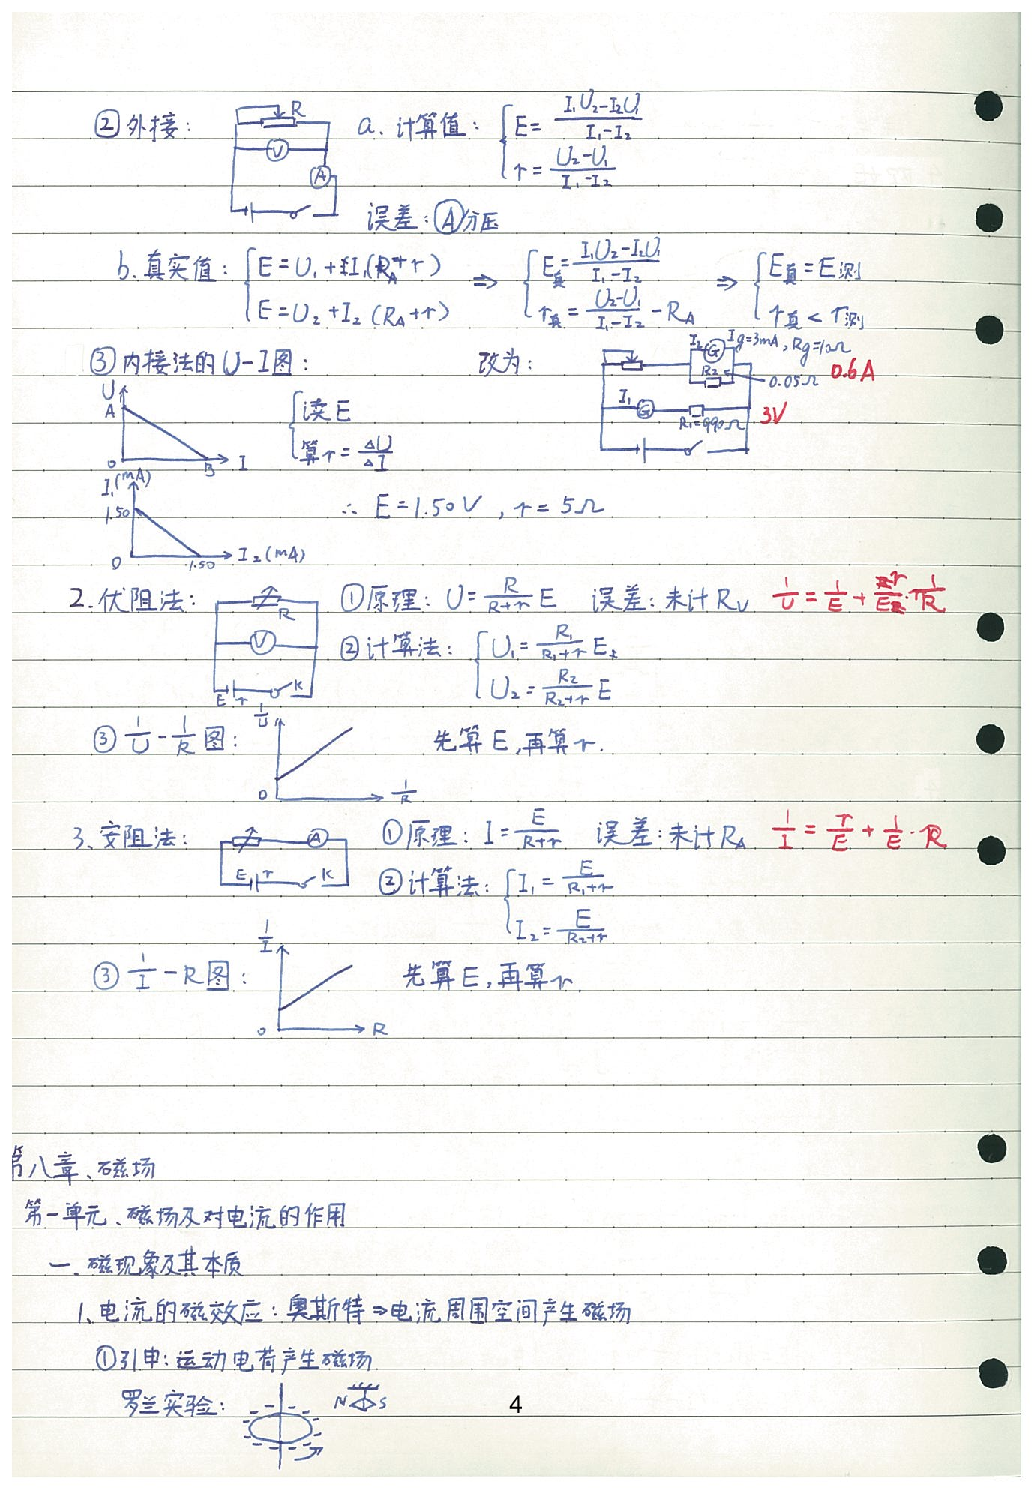 ②外接: R V A a. 计算值: { E = (I₁U₂-I₂U₁)/(I₁-I₂)
r = (U₂-U₁)/(I₁-I₂)
误差: Ⓐ分压
b. 真实值: { E = U₁ + I₁(R_A+r) ⇒ { E真 = (I₁U₂-I₂U₁)/(I₁-I₂) ⇒ { E真 = E测
E = U₂ + I₂(R_A+r) r真 = (U₂-U₁)/(I₁-I₂) - R_A r真 < r测
③内接法的U-I图: 改为: I₂ G Ig=3mA, Rg=10Ω
R₂ 0.05Ω 0.6A
U A 0 B I { 读E I₁ G R₁=990Ω 3V
算r = ΔU/ΔI
I₁(mA) 1.50 0 1.50 I₂(mA) ∴ E=1.50V, r=5Ω
2.伏阻法: R V E r K ①原理: U = R/(R+r) E 误差: 未计R_V 1/U = 1/E + r/E · 1/R
②计算法: { U₁ = R₁/(R₁+r) E
U₂ = R₂/(R₂+r) E
③ 1/U - 1/R 图: 1/U 0 1/R 先算E,再算r.
3、安阻法: A E r K ①原理: I = E/(R+r) 误差: 未计R_A 1/I = r/E + 1/E · R
②计算法: { I₁ = E/(R₁+r)
I₂ = E/(R₂+r)
③ 1/I - R图: 1/I 0 R 先算E,再算r
第八章、磁场
第一单元、磁场及对电流的作用
一、磁现象及其本质
1、电流的磁效应: 奥斯特⇒电流周围空间产生磁场
①引申: 运动电荷产生磁场
罗兰实验: N S
4